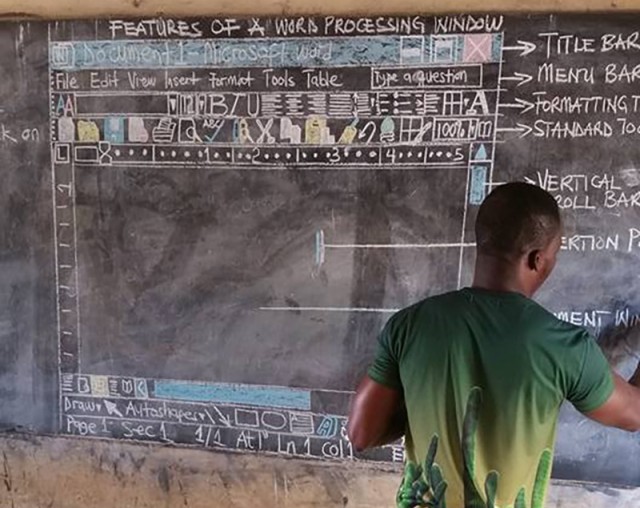 FEATURES OF A WORD PROCESSING WINDOW
W Document 1 - Microsoft word
TITLE BAR
File Edit View Insert Format Tools Table
Type a question
MENU BAR
AA
B I U
A
FORMATTING T
100%
STANDARD TO
ck on
L
1 2 3 4 5
VERTICAL
ROLL BAR
1
ERTION P
MENT WIN
Draw
Autoshapes
A
Page 1 Sec 1 1/1 At 1" Ln 1 Col 1